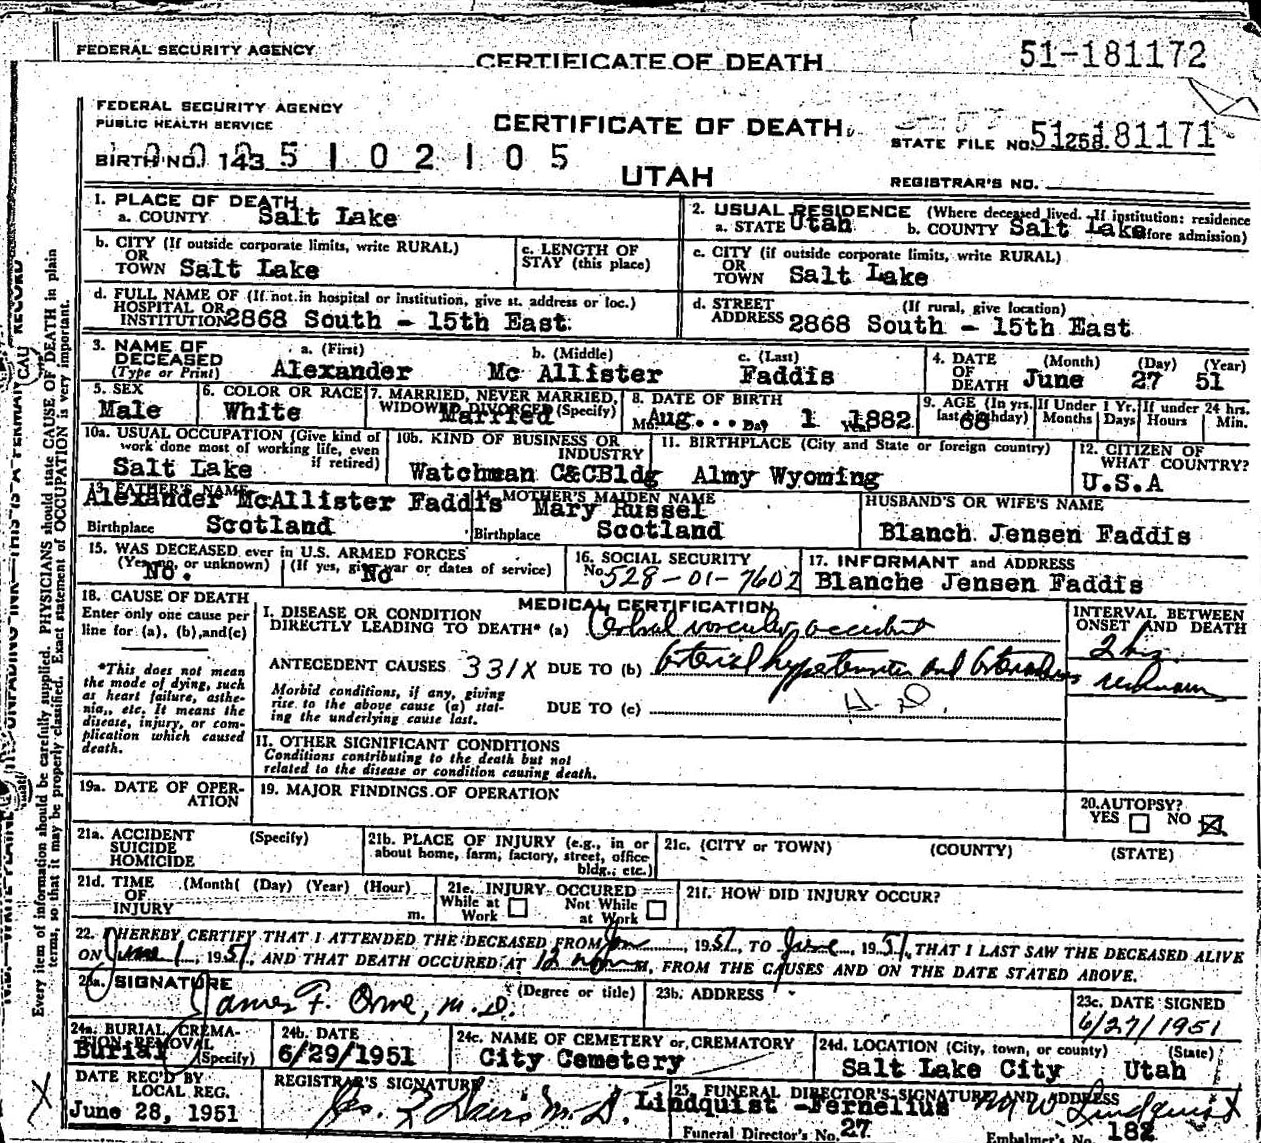 FEDERAL SECURITY AGENCY
CERTIFICATE OF DEATH
51-181172
FEDERAL SECURITY AGENCY
PUBLIC HEALTH SERVICE
CERTIFICATE OF DEATH
STATE FILE NO. 51 181171
BIRTH NO. 143 5 1 0 2 1 0 5
UTAH
REGISTRAR'S NO.
1. PLACE OF DEATH
a. COUNTY Salt Lake
2. USUAL RESIDENCE (Where deceased lived. If institution: residence before admission)
a. STATE Utah b. COUNTY Salt Lake
b. CITY (If outside corporate limits, write RURAL)
OR
TOWN Salt Lake
c. LENGTH OF
STAY (this place)
c. CITY (if outside corporate limits, write RURAL)
OR
TOWN Salt Lake
d. FULL NAME OF (If not in hospital or institution, give st. address or loc.)
HOSPITAL OR
INSTITUTION 2868 South - 15th East
d. STREET (If rural, give location)
ADDRESS 2868 South - 15th East
3. NAME OF
DECEASED
(Type or Print)
a. (First) b. (Middle) c. (Last)
Alexander Mc Allister Faddis
4. DATE OF DEATH (Month) (Day) (Year)
June 27 51
5. SEX
Male
6. COLOR OR RACE
White
7. MARRIED, NEVER MARRIED,
WIDOWED DIVORCED (Specify)
Married
8. DATE OF BIRTH
Aug. 1 1882
9. AGE (In yrs. last birthday) If Under 1 Yr. If under 24 hrs.
68 Months Days Hours Min.
10a. USUAL OCCUPATION (Give kind of
work done most of working life, even
if retired)
Salt Lake
10b. KIND OF BUSINESS OR
INDUSTRY
Watchman C&CBldg
11. BIRTHPLACE (City and State or foreign country)
Almy Wyoming
12. CITIZEN OF
WHAT COUNTRY?
U.S.A
13. FATHER'S NAME
Alexander McAllister Faddis
Birthplace Scotland
14. MOTHER'S MAIDEN NAME
Mary Russel
Birthplace Scotland
HUSBAND'S OR WIFE'S NAME
Blanch Jensen Faddis
15. WAS DECEASED ever in U.S. ARMED FORCES
(Yes, no, or unknown) (If yes, give war or dates of service)
No. No
16. SOCIAL SECURITY
No. 528-01-7602
17. INFORMANT and ADDRESS
Blanche Jensen Faddis
18. CAUSE OF DEATH
Enter only one cause per
line for (a), (b), and (c)
*This does not mean
the mode of dying, such
as heart failure, asthe-
nia,, etc, It means the
disease, injury, or com-
plication which caused
death.
MEDICAL CERTIFICATION
I. DISEASE OR CONDITION
DIRECTLY LEADING TO DEATH* (a) Cerebral vascular accident
INTERVAL BETWEEN
ONSET AND DEATH
2 hrs.
ANTECEDENT CAUSES 331X DUE TO (b) Arterial hypertension and
Morbid conditions, if any, giving
rise to the above cause (a) stat-
ing the underlying cause last.
DUE TO (c) H. D.
II. OTHER SIGNIFICANT CONDITIONS
Conditions contributing to the death but not
related to the disease or condition causing death.
19a. DATE OF OPER-
ATION
19. MAJOR FINDINGS OF OPERATION
20. AUTOPSY?
YES NO
21a. ACCIDENT (Specify)
SUICIDE
HOMICIDE
21b. PLACE OF INJURY (e.g., in or
about home, farm, factory, street, office
bldg., etc.)
21c. (CITY or TOWN) (COUNTY) (STATE)
21d. TIME (Month( (Day) (Year) (Hour)
OF
INJURY m.
21e. INJURY OCCURED
While at Work Not While at Work
21f. HOW DID INJURY OCCUR?
22. I HEREBY CERTIFY THAT I ATTENDED THE DECEASED FROM Jan, 1951, TO June, 1951, THAT I LAST SAW THE DECEASED ALIVE
ON June 1, 1951, AND THAT DEATH OCCURED AT 12 noon M, FROM THE CAUSES AND ON THE DATE STATED ABOVE.
23a. SIGNATURE (Degree or title)
James F. Orme, M.D.
23b. ADDRESS
23c. DATE SIGNED
6/27/1951
24a. BURIAL, CREMA-
TION REMOVAL
(Specify)
Burial
24b. DATE
6/29/1951
24c. NAME OF CEMETERY or CREMATORY
City Cemetery
24d. LOCATION (City, town, or county) (State)
Salt Lake City Utah
DATE REC'D BY
LOCAL REG.
June 28, 1951
REGISTRAR'S SIGNATURE
M. D.
25. FUNERAL DIRECTOR'S SIGNATURE AND ADDRESS
Lindquist -Fernelius M W Lindquist
Funeral Director's No. 27 Embalmer's No. 182
Every item of information should be carefully supplied. PHYSICIANS should state CAUSE OF DEATH in plain
terms, so that it may be properly classified. Exact statement of OCCUPATION is very important.